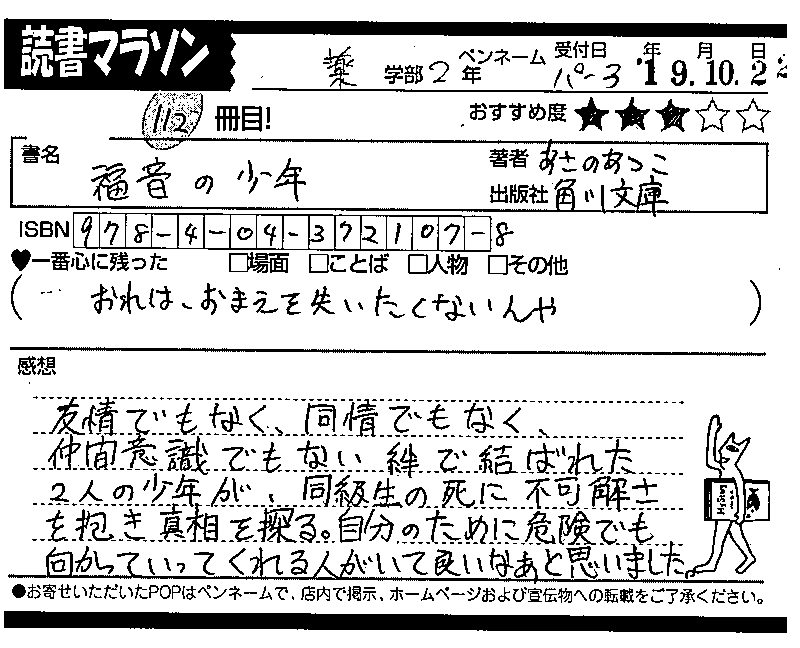 読書マラソン
薬 学部 2年 ペンネーム パーコ 受付日 '19年.10月.22日
112 冊目! おすすめ度 ★★★☆☆
書名 福音の少年 著者 あさのあつこ
出版社 角川文庫
ISBN 978-4-04-372107-8
♥一番心に残った □場面 □ことば □人物 □その他
( … おれは、おまえを失いたくないんや )
感想
友情でもなく、同情でもなく、
仲間意識でもない絆で結ばれた
2人の少年が、同級生の死に不可解さ
を抱き真相を探る。自分のために危険でも
向かっていってくれる人がいて良いなあと思いました。
●お寄せいただいたPOPはペンネームで、店内で掲示、ホームページおよび宣伝物への転載をご了承ください。